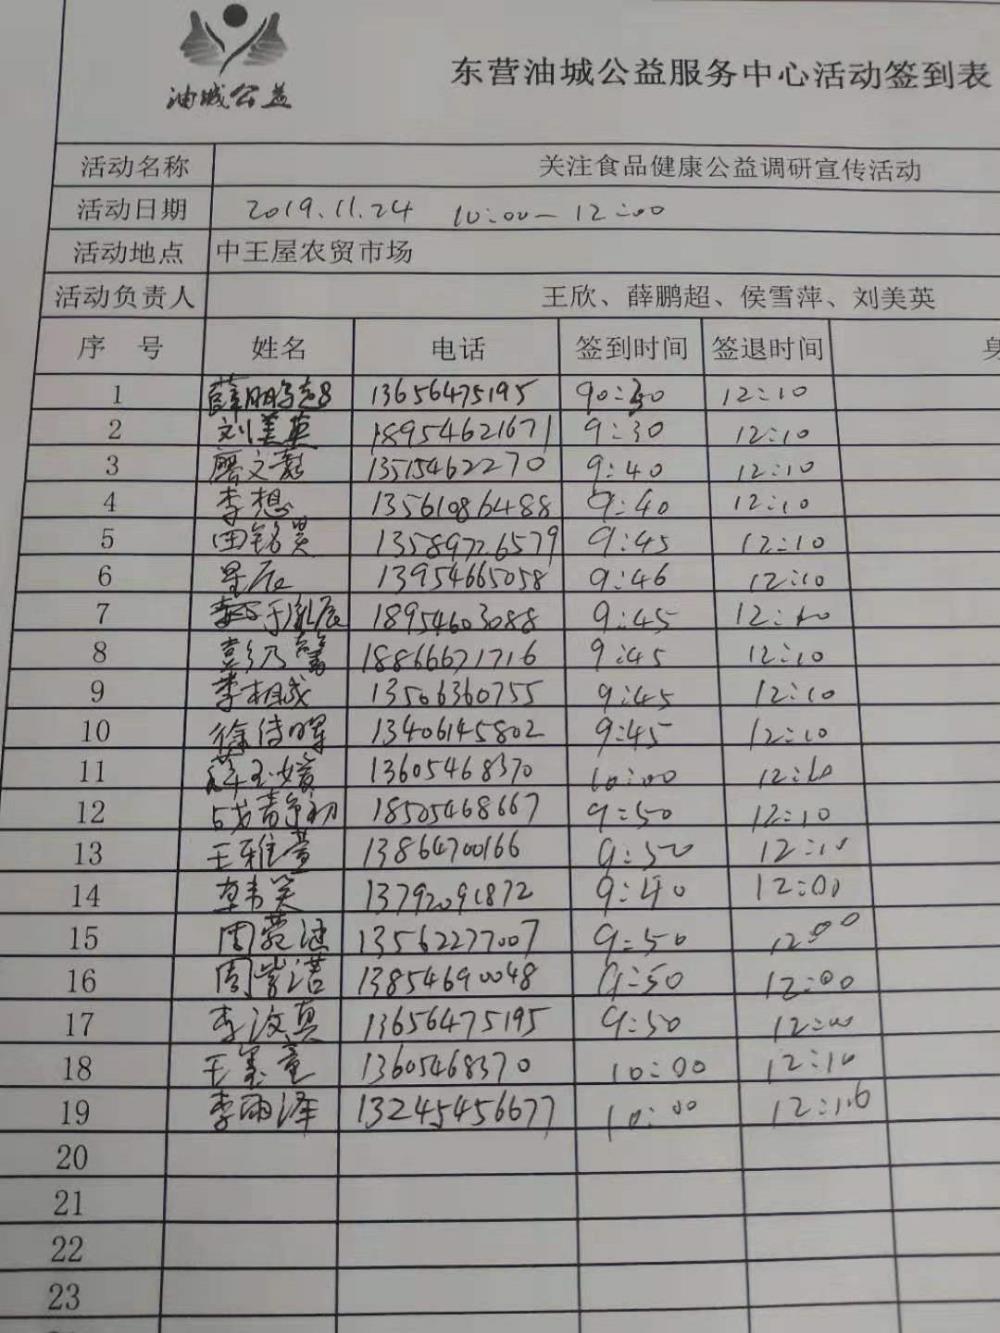 油城公益
东营油城公益服务中心活动签到表
活动名称 关注食品健康公益调研宣传活动
活动日期 2019.11.24 10:00—12:00
活动地点 中王屋农贸市场
活动负责人 王欣、薛鹏超、侯雪萍、刘美英
序号 姓名 电话 签到时间 签退时间 身
1 薛鹏超 13656475195 12:10
2 刘美英 18954621671 9:30 12:10
3 13515462270 9:40 12:10
4 李想 13561086488 9:40 12:10
5 田铭昊 13589726579 9:45 12:10
6 星辰 13954665058 9:46 12:10
7 18954603088 9:45 12:10
8 彭乃馨 18866671716 9:45 12:10
9 李相成 13506360755 9:45 12:10
10 13406145802 9:45 12:10
11 13605468370 10:00 12:10
12 18505468667 9:50 12:10
13 王雅萱 13864700166 9:50 12:10
14 韩笑 13792091872 9:40 12:00
15 13562277007 9:50 12:00
16 周紫浩 13854690048 9:50 12:00
17 李汶真 13656475195 9:50 12:00
18 王玺童 13605468370 10:00 12:10
19 李雨泽 13245456677 10:00 12:10
20
21
22
23